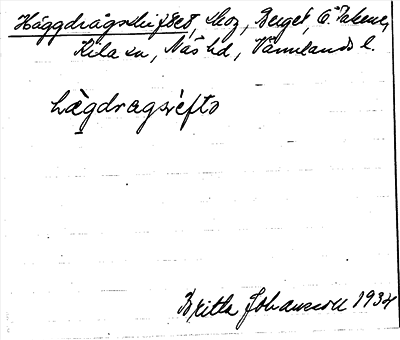 Häggdragsskiftet, skog, Berget, Ö. Takene,
Kila sn, Näs hd, Värmlands l.
hæ̀gdragsǿeftə
Britta Johansson 1934